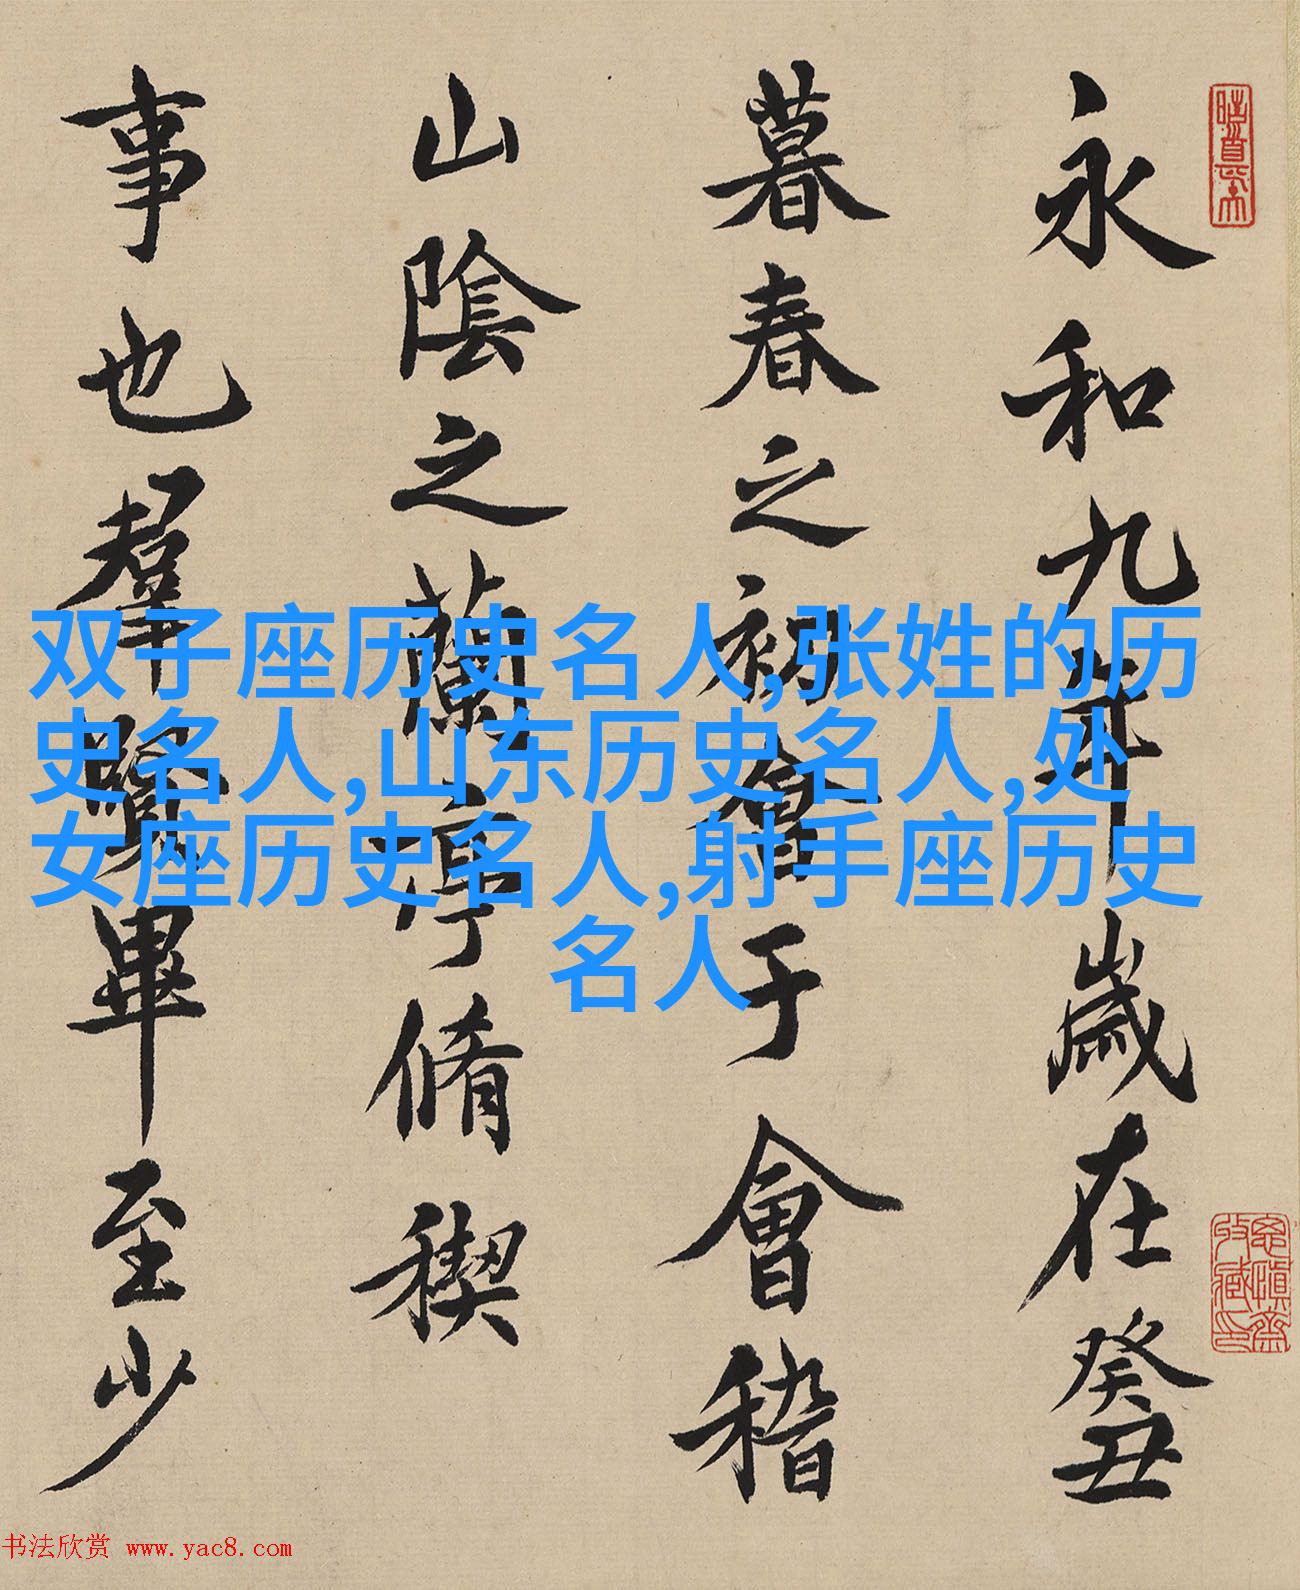 永和九年歲在癸丑
暮春之初會于會稽
山陰之蘭亭脩稧
事也羣賢畢至少
双子座历史名人,张姓的历
史名人,山东历史名人,处
女座历史名人,射手座历史
名人
书法欣赏 www.yac8.com